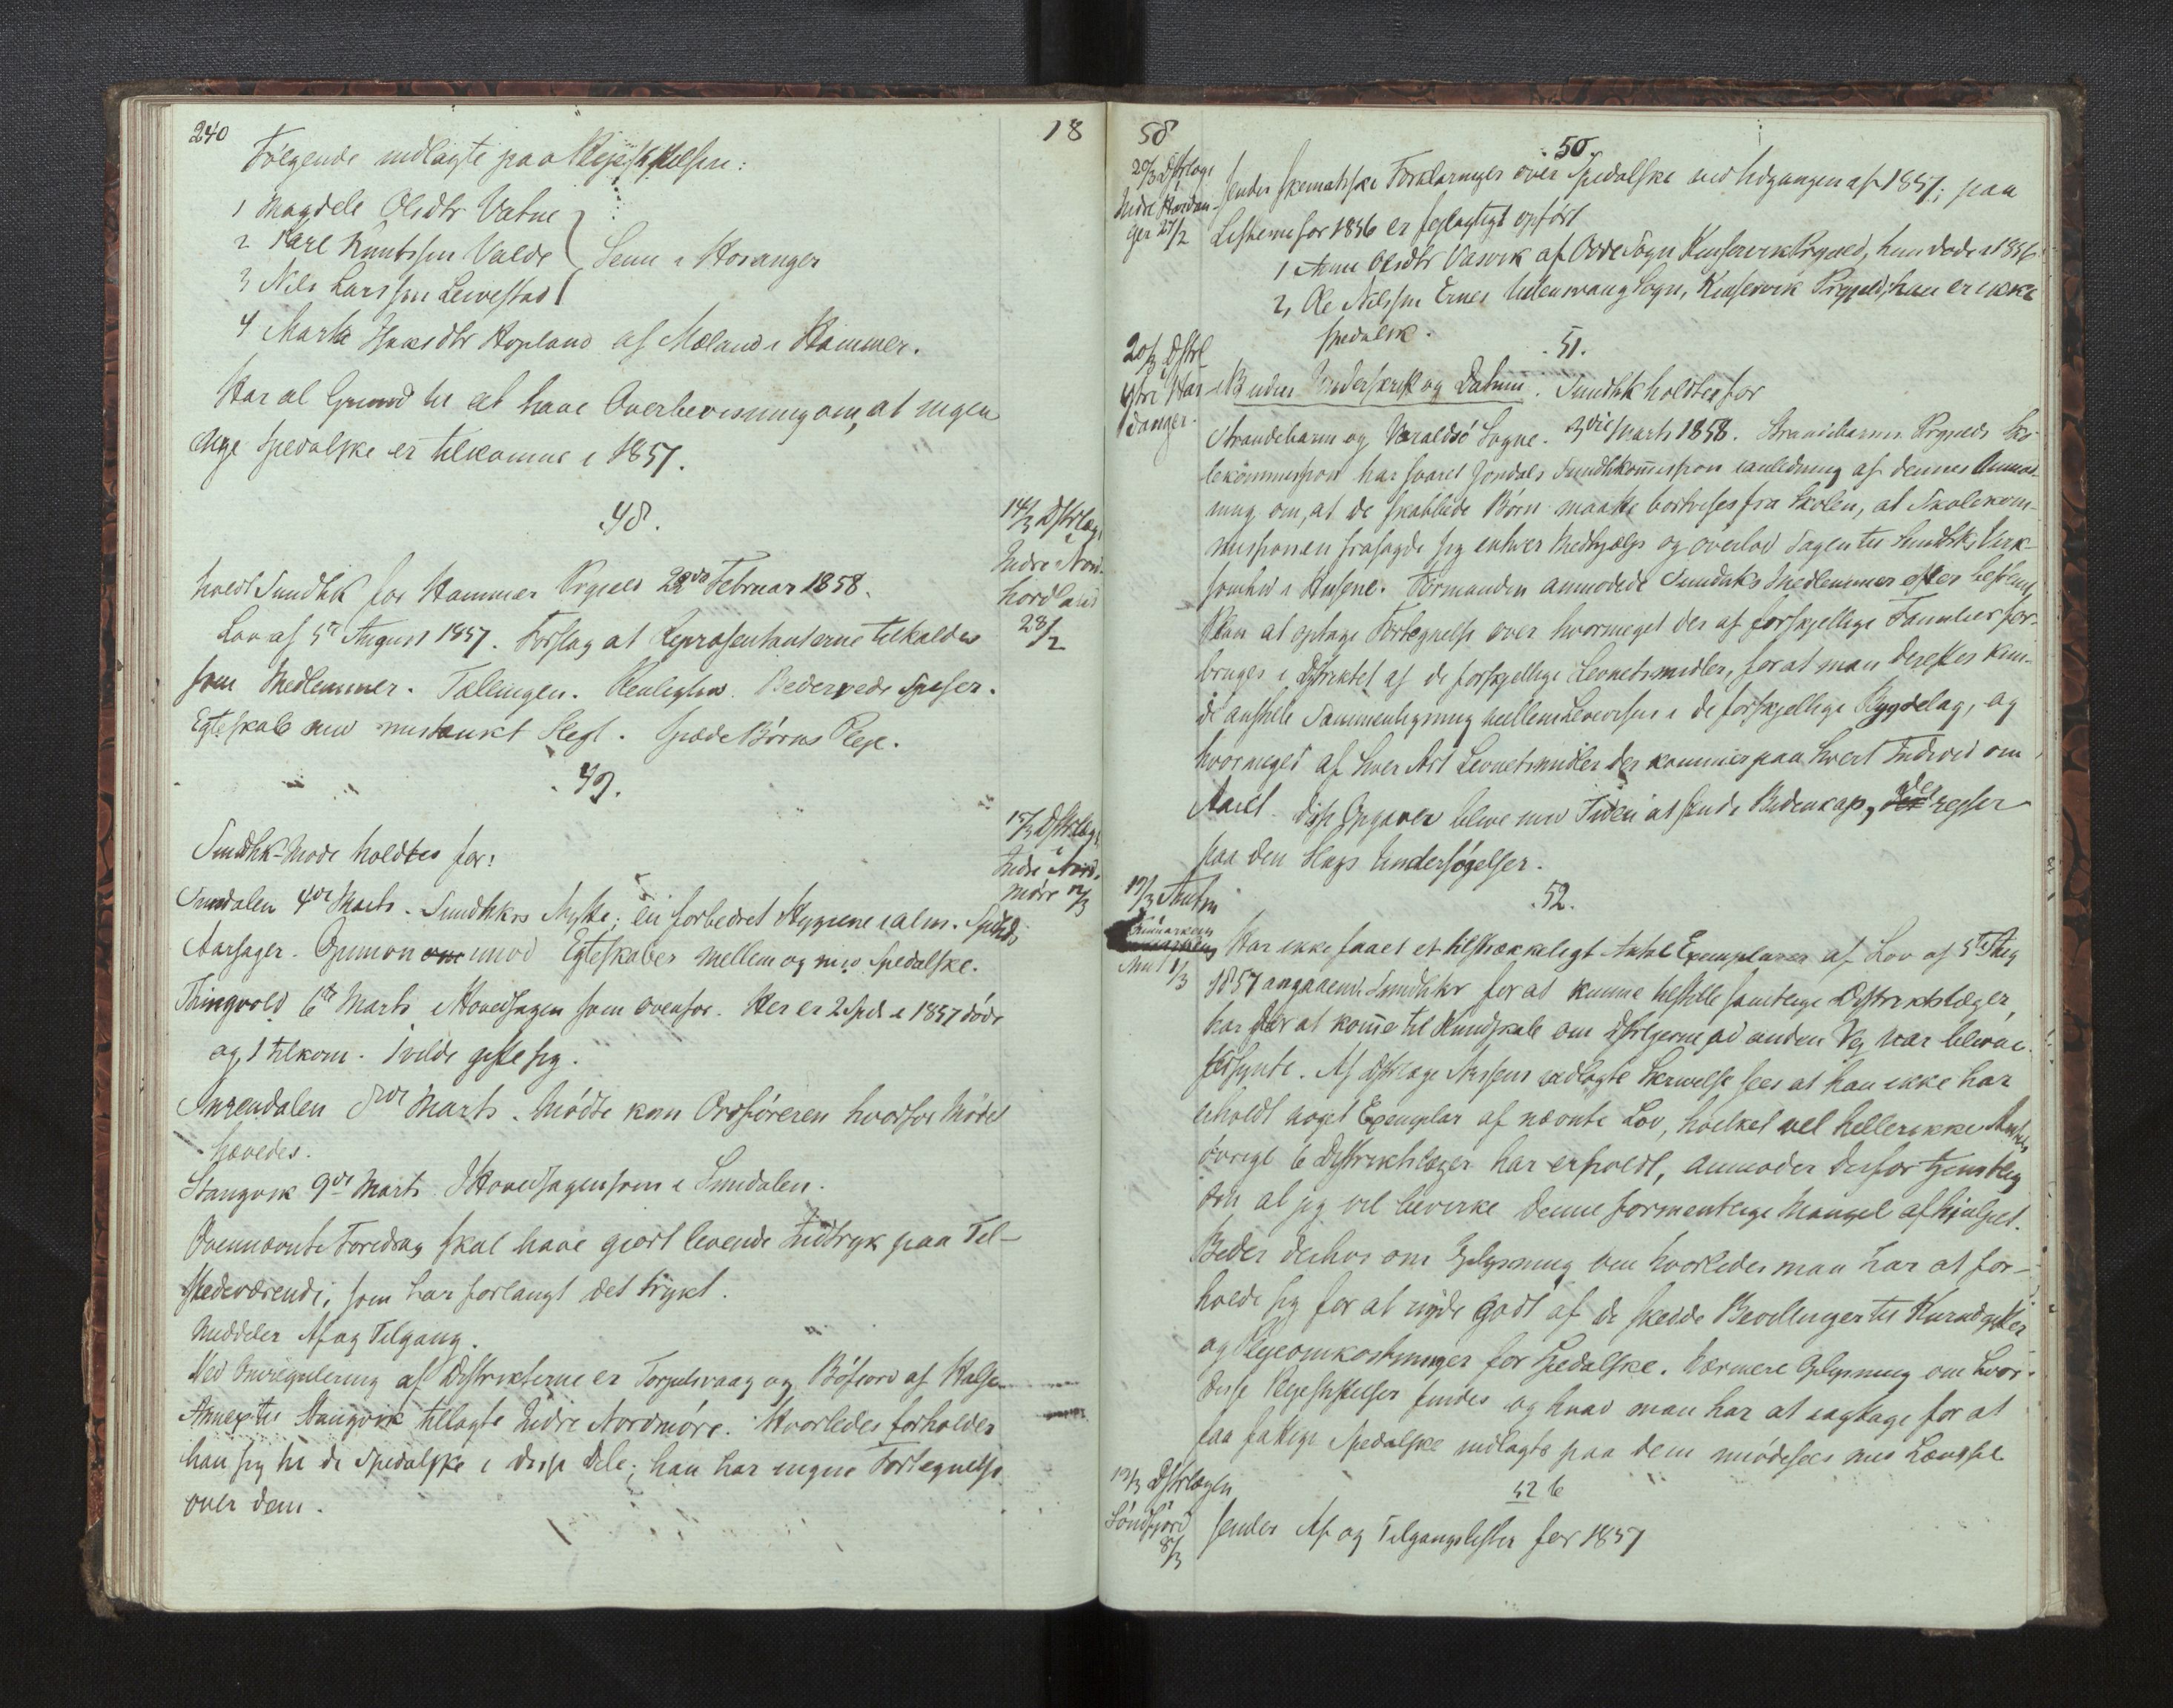 240
18
Følgende indlagte paa Plejestiftelsen:
1 Magdele Olsdtr Vatne
2 Karl Knutssen Valde
3 Nils Larssen Leirestad
Senn i Hosanger
4 Marte Isaksdtr Hopland af Mæland i Hammer.
Har al Grund til at have Overbevisning om, at ingen
nye Spedalske er tilkomne i 1857.
48.
14/3 Dstrlæg.
Indre Nord-
hordland
23/2
holdt Sundhk for Hammer Prgjeld 22de Februar 1858.
Lov af 5te August 1857. Forslag at Repræsentanterne tilkaldes
som Medlemmer. Tællingen. Renlighed. Bedervede Spiser.
Egteskab med mistænkt Slegt. Spæde Børns Pleje.
49.
15/3 Dstrlæg.
Indre Nord-
møre 12/3
Sundhk-Møde holdtes for:
Sundalen 4de Marts. Sundhks Nytte; en forbedret Hygiene i alm. Spedks
Aarsager. Opinion om imod Egteskaber mellem og med Spedalske.
Thingvold 6te Marts i Hovedsagen som ovenfor. Her er 2 Sped. i 1857 døde
og 1 tilkom. 1 vilde gifte sig.
Surendalen 8de Marts. Mødte kun Ordføreren hvorfor Mødet
hævedes.
Stangvik 9de Marts I Hovedsagen som i Sundalen.
Ovennævnte Foredrag skal have gjort levende Indtryk paa Til-
stedeværende, som har forlangt det trykt.
Meddeler Af og Tilgang.
Ved Omregulering af Distrikterne er Torjulsvaag og Bøfiord af Halse
Annex til Stangvik tillagte Indre Nordmøre. Hvorledes forholder
han sig til de Spedalske i disse Dele; han har ingen Fortegnelse
over dem.
58
50.
20/3 Dstrlæge
Indre Hardan-
ger 27/2
sender skematiske Forklaringer over Spedalske ved Udgangen af 1857; paa
Listerne for 1856 er feilagtigt opført
1 Anne Olsdtr Vasvik af Odde Sogn Kinservik Prgjeld, hun døde i 1856
2, Ole Nilssen Ernes Ullensvang Sogn, Kinservik Prgjeld, han er ikke
spedalsk.
51.
20/3 Dstrl
Ytre Har-
danger.
Uden Underskrift og Datum. Sundhk holdtes for
Strandebarm og Varaldsø Sogne. 3die Marts 1858. Strandebarms Prgjelds Sko-
lekommission har svaret Jondals Sundhkommission i anledning af dennes Anmod-
ning om, at de skabbede Børn maatte bortvises fra Skolen, at Skolekom-
missionen frasagde sig enhver Medhjælp og overlod Sagen til Sundhks Virk-
somhed i Husene. Formanden anmodede Sundhks Medlemmer efter bestemt
Plan at optage Fortegnelse over hvormeget der af forskjellige Familier for-
bruges i Distriktet af de forskjellige Levnetsmidler, for at man derefter kun-
de anstille Sammenligning mellem Levevisen i de forskjellige Bygdelag, og
hvormeget af hver Art Levnetsmidler der kommer paa hvert Individ om
Aaret. Disse Opgaver blive med Tiden at sende Videnskaps
paa den Slags Undersøgelser.
52.
17/3 Amtm
Finmarkens
Amt 1/3
Har ikke faaet et tilstrækkeligt Antal Exemplarer af Lov af 5te Aug
1857 angaaende Sundhkr for at kunne tilstille samtlige Distriktslæger,
har dær at komme til Kundskab om Dstrlægerne ad anden Vej var bleven
forsynte. Af Dstrlæge vedlagte Skrivelse sees at han ikke har
erholdt noget Exemplar af nævnte Lov, hvilket vel heller ikke Amtets
øvrige 6 Distriktslæger har erholdt, anmoder derfor tjenstlig
om at jeg vil bevirke denne formentlige Mangel afhjulpet.
Beder derhos om Oplysning om hvorledes man har at for-
holde sig for at nyde godt af de skedde Bevillinger til Kurudgifter
og Plejeomkostninger for Spedalske. Nærmere Oplysning om hvor
disse Plejestiftelser findes og hvad man har at iagttage for at
faa fattige Spedalske indlagte paa dem imødesees med Længsel
52 b
17/3 Dstrlægen
Søndfjord
8/3
sender Af og Tilgangslister for 1857